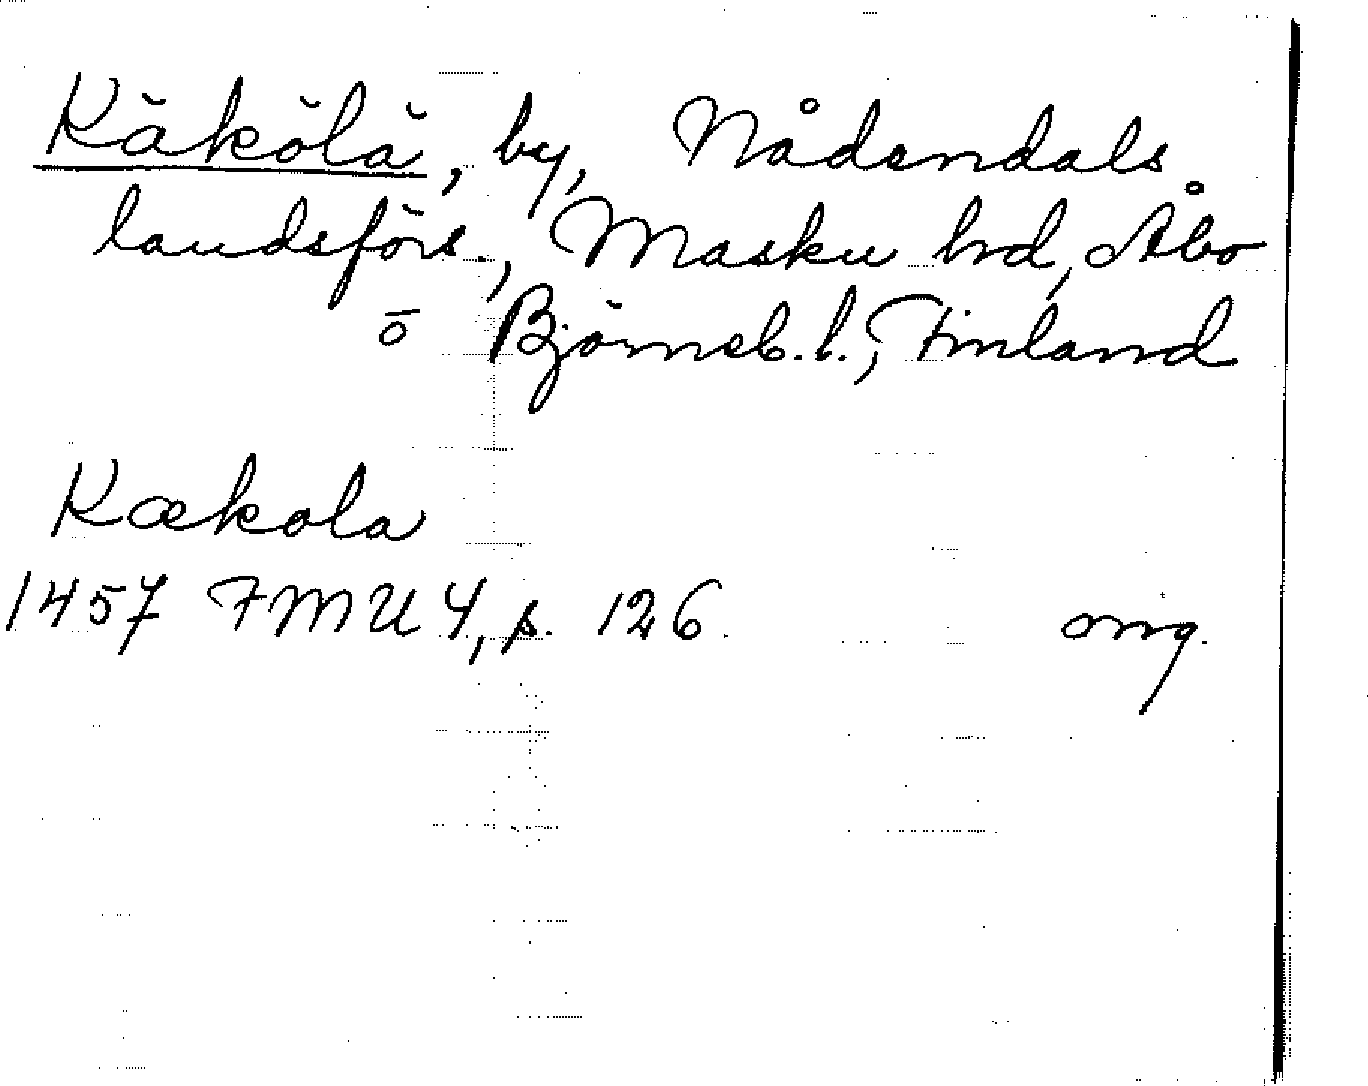 Käkölä, by, Nådendals
landsförs., Masku hd, Åbo
o Björneb. l., Finland
Kækola
1457 FMU 4, s. 126. orig.